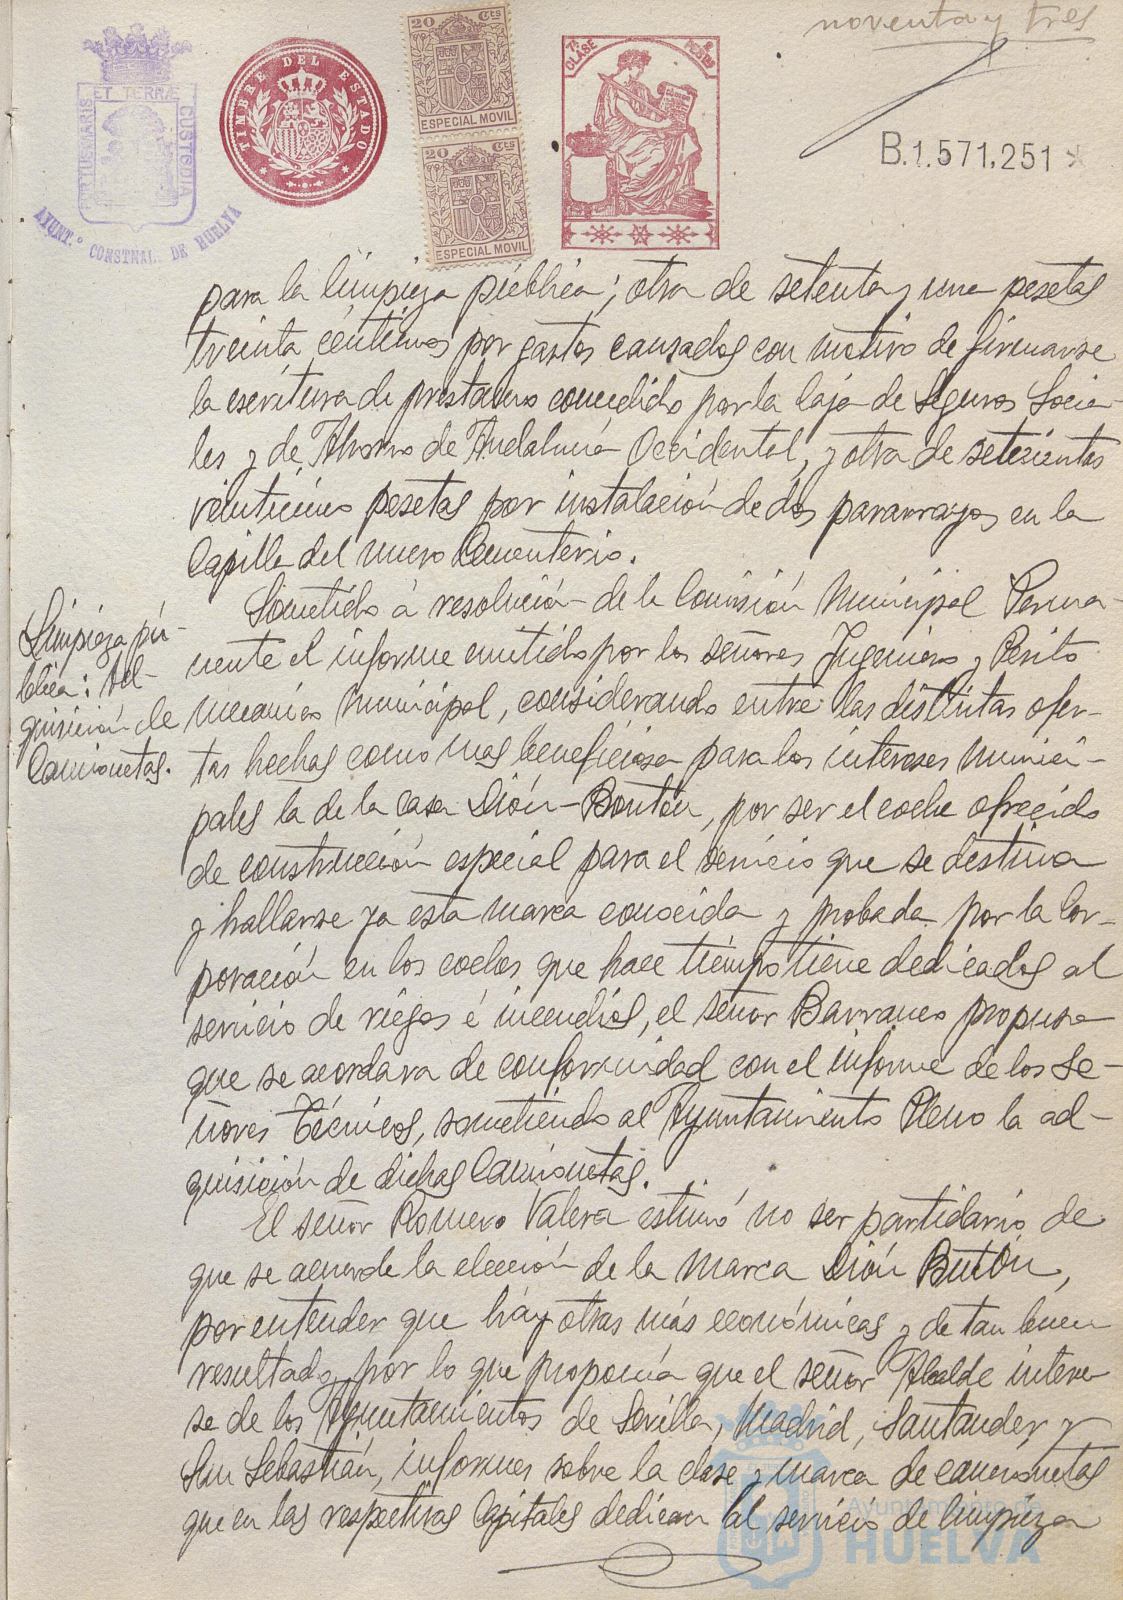 noventa y tres
PORTUS MARIS ET TERRÆ CUSTODIA
AYUNT.º CONSTNAL. DE HUELVA
TIMBRE DEL ESTADO
20 Cts
ESPECIAL MOVIL
20 Cts
ESPECIAL MOVIL
7ª CLASE
PESETAS
B.1.571.251
para la limpieza pública; otra de setenta y una pesetas
treinta céntimos por gastos causados con motivo de firmarse
la escritura de préstamo concedido por la Caja de Seguros Socia-
les y de Ahorro de Andalucía Occidental, y otra de setecientas
veinticinco pesetas por instalación de dos pararrayos en la
Capilla del nuevo Cementerio.
Limpieza pú-
blica: Ad-
quisición de
Camionetas.
Sometido á resolución de la Comisión Municipal Perma-
nente el informe emitido por los señores Ingeniero y Perito
mecánico Municipal, considerando entre las distintas ofer-
tas hechas como mas beneficiosa para los intereses munici-
pales la de la casa Dión-Boutón, por ser el coche ofrecido
de construcción especial para el servicio que se destina
y hallarse ya esta marca conocida y probada por la Cor-
poración en los coches que hace tiempo tiene dedicados al
servicio de riegos é incendios, el señor Barranco propuso
que se acordara de conformidad con el informe de los Se-
ñores Técnicos, sometiendo al Ayuntamiento Pleno la ad-
quisición de dichas Camionetas.
El señor Romero Valera estimó no ser partidario de
que se acuerde la elección de la marca Dión Butón,
por entender que hay otras más económicas y de tan buen
resultado, por lo que proponía que el señor Alcalde intere
se de los Ayuntamientos de Sevilla, Madrid, Santander y
San Sebastián, informes sobre la clase y marca de camionetas
que en las respectivas Capitales dedican al servicio de limpieza
Ayuntamiento de
HUELVA